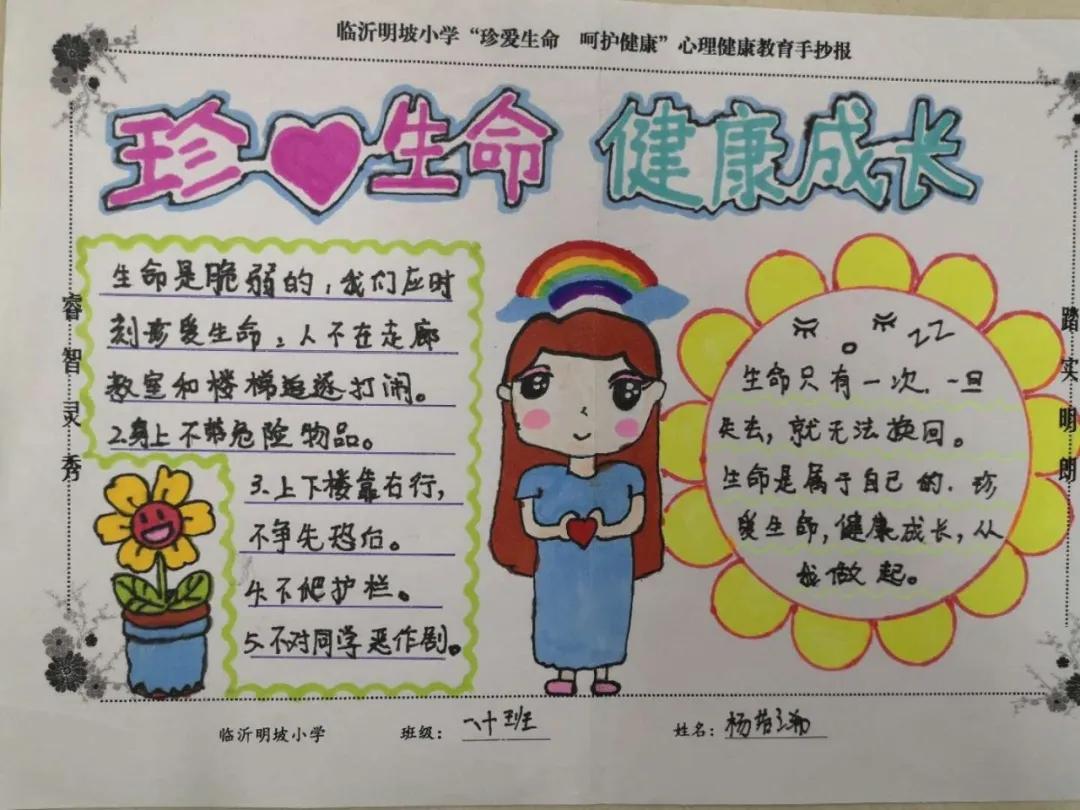 临沂明坡小学“珍爱生命 呵护健康”心理健康教育手抄报
珍 生命 健康成长
睿智灵秀
生命是脆弱的，我们应时
刻珍爱生命，1、不在走廊
教室和楼梯追逐打闹。
2.身上不带危险物品。
3.上下楼靠右行，
不争先恐后。
4.不爬护栏。
5.不对同学恶作剧。
ZZ
生命只有一次.一旦
失去，就无法换回。
生命是属于自己的.珍
爱生命，健康成长，从
我做起。
踏实明朗
临沂明坡小学 班级：一十班 姓名：杨